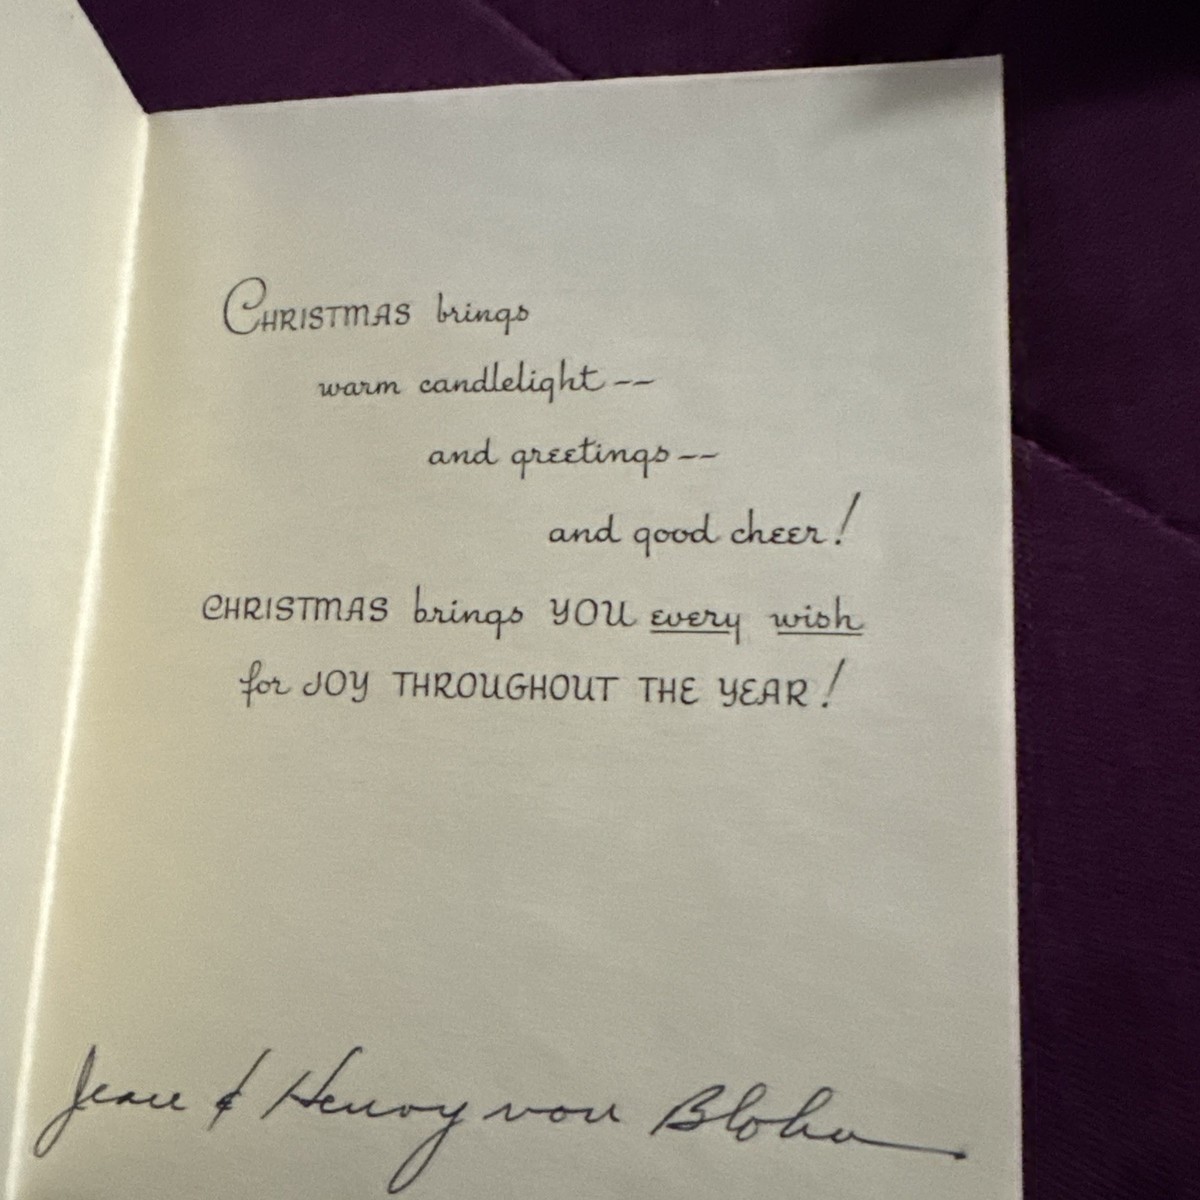 CHRISTMAS brings
warm candlelight--
and greetings--
and good cheer!
CHRISTMAS brings YOU every wish
for JOY THROUGHOUT THE YEAR!
Jean & Henry von